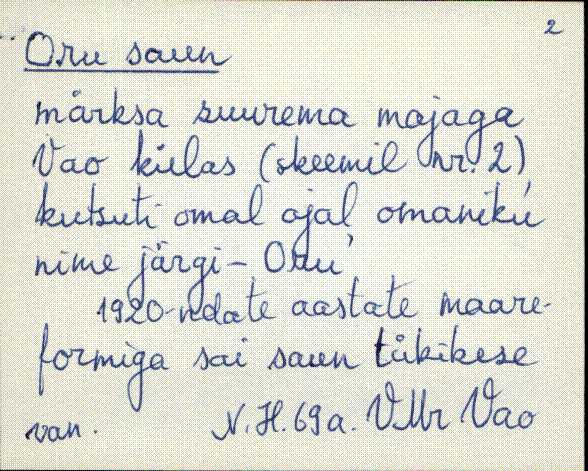 2
Oru saun
märksa suurema majaga
Vao külas (skeemil nr. 2)
kutsuti omal ajal omaniku
nime järgi – Oru
1920-ndate aastate maare-
formiga sai saun tükikese
van. N. H. 69 a. VMr Vao